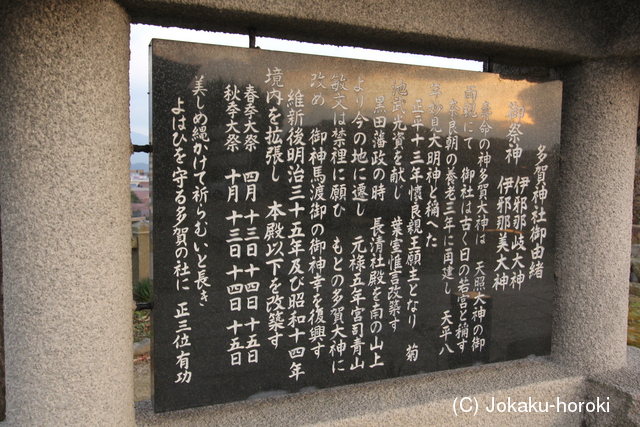 多賀神社御由緒
御祭神 伊邪那岐大神
伊邪那美大神
寿命の神多賀大神は 天照大神の御
親神にて 御社は古く日の若宮と稱す
奈良朝の養老三年に再建し 天平八
年妙見大明神と稱へた
正平十三年懷良親王願主となり 菊
池武光資を献じ 葉室惟言改築す
黒田藩政の時 長清社殿を南の山上
より今の地に遷し 元禄五年宮司青山
敏文は禁裡に願ひ もとの多賀大神に
改め 御神馬渡御の御神幸を復興す
維新後明治三十五年及び昭和十四年
境内を拡張し 本殿以下を改築す
春季大祭 四月十三日十四日十五日
秋季大祭 十月十三日十四日十五日
美しめ縄かけて祈らむいと長き
よはひを守る多賀の社に 正三位有功
(C) Jokaku-horoki